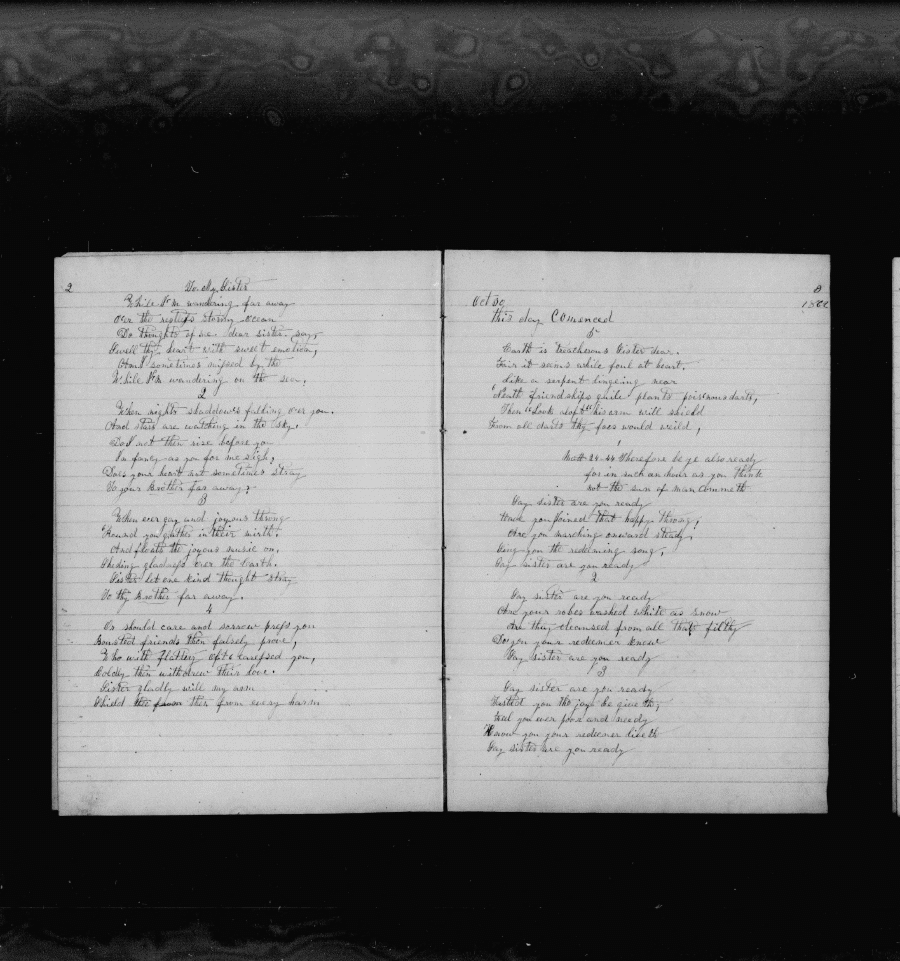 2 To My Sister
While I'm wandering far away
Over the restless stormy ocean
Do thoughts of me dear sister say,
Swell thy heart with sweet emotion,
Am I sometimes missed by the
While I'm wandering on the sea,
2
When nights shaddows falling over you.
And stars are watching in the sky.
Do I not then rise before you
In fancy as you for me sigh,
Does your heart not sometimes stray
To your Brother far away?
3
When ever gay and joyous throng
Round you gather in their mirth.
And floats the joyous music on,
Sheding gladness over the Earth.
Sister let one kind thought stray
To thy Brother far away.
4
Or should care and sorrow press you
Boasted friends then falsely prove,
Who with flattery oft caressed you,
Coldly then withdrew their love.
Sister gladly will my arm
Shield thee from every harm
3
Oct 30
this day Comenced
5
Earth is treacherous Sister dear.
Fair it seems while foul at heart.
Like a serpent lingeing near
Neath friendships guile plants poisnous darts,
Then "Look aloft" his arm will shield
From all darts thy foes would weild,
1
Matt 24-44 Therefore be ye also ready
for in such an hour as you think
not the sun of man commeth
Say sister are you ready
Have you joined that happy throng,
Are you marching onward steady,
Sing you the redeeming song,
Say sister are you ready
2
Say sister are you ready
Are your robes washed white as snow
Are they cleansed from all that filthy
Do you your redeemer know
Say sister are you ready
3
Say sister are you ready
Tasted you the joys he giveth,
Feel you ever poor and needy
Know you your redeemer liveth
Say sister are you ready